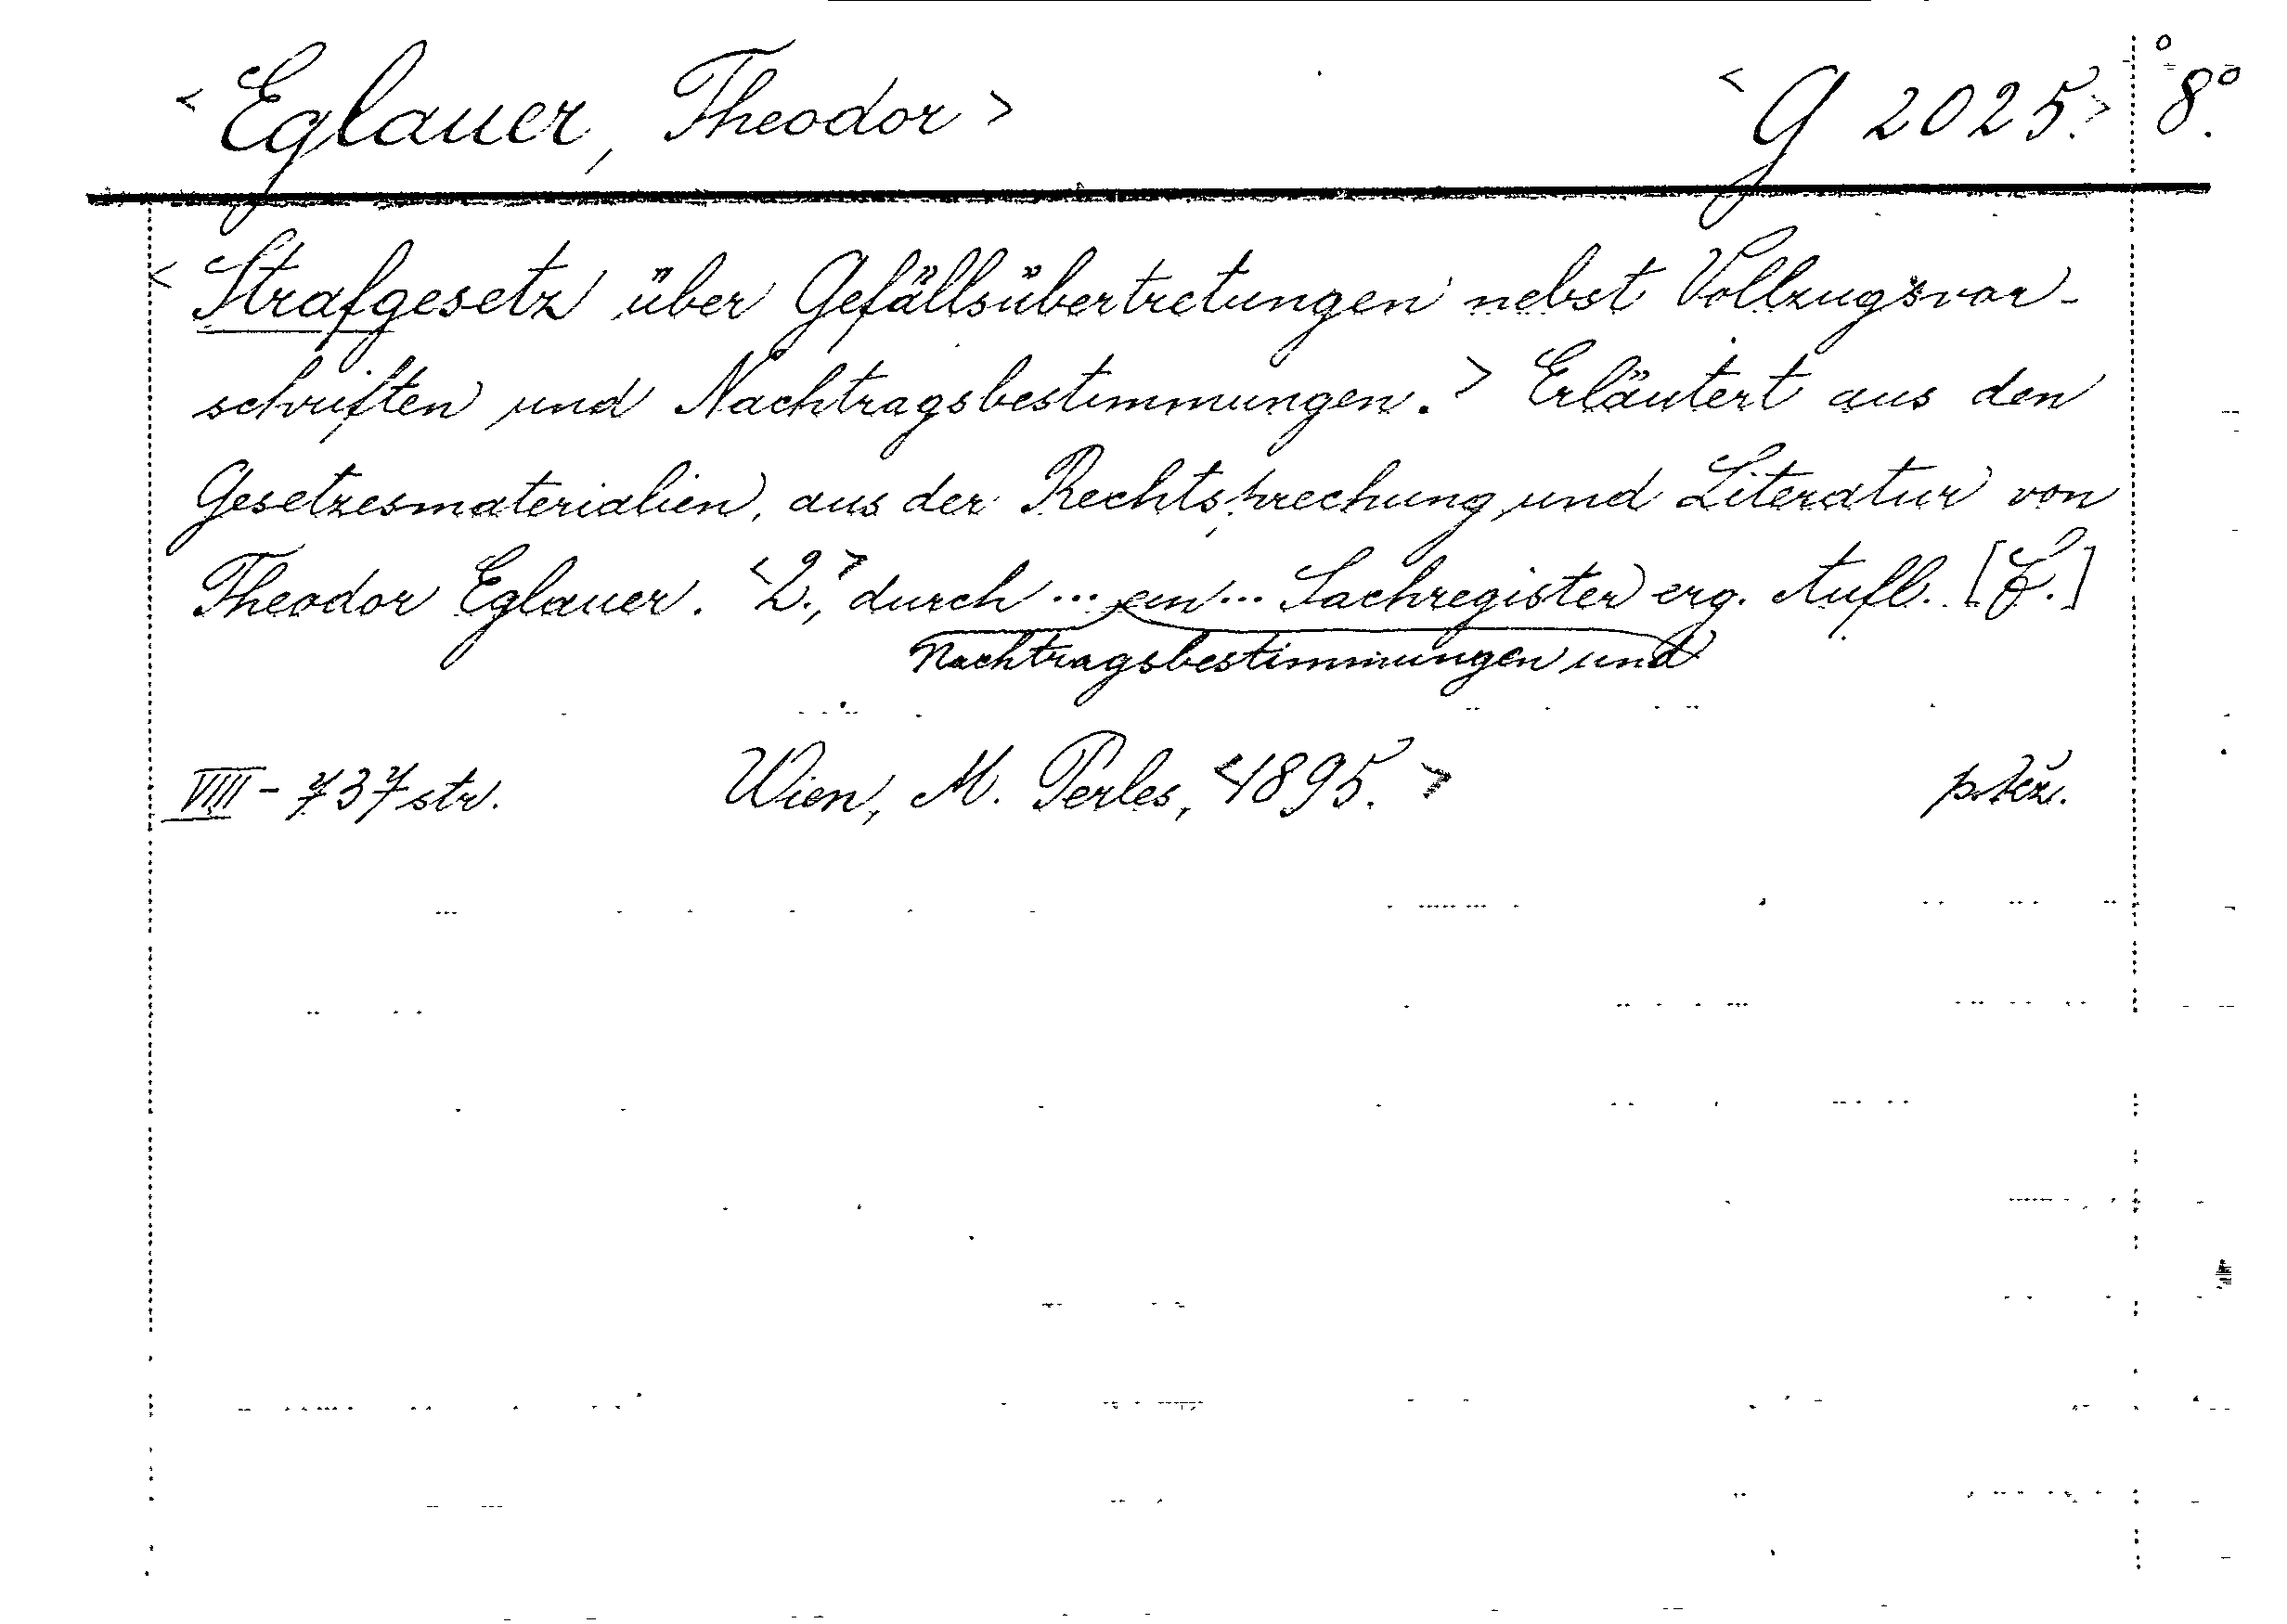 <Eglauer, Theodor> <G 2025.> 8°.
<Strafgesetz über Gefällsübertretungen nebst Vollzugsvor-
schriften und Nachtragsbestimmungen.> Erläutert aus den
Gesetzesmaterialien, aus der Rechtsprechung und Literatur von
Theodor Eglauer. <2.,> durch ... ein ... Sachregister erg. Aufl.
Nachtragsbestimmungen und
VIII - 737 str. Wien, M. Perles, <1895.>